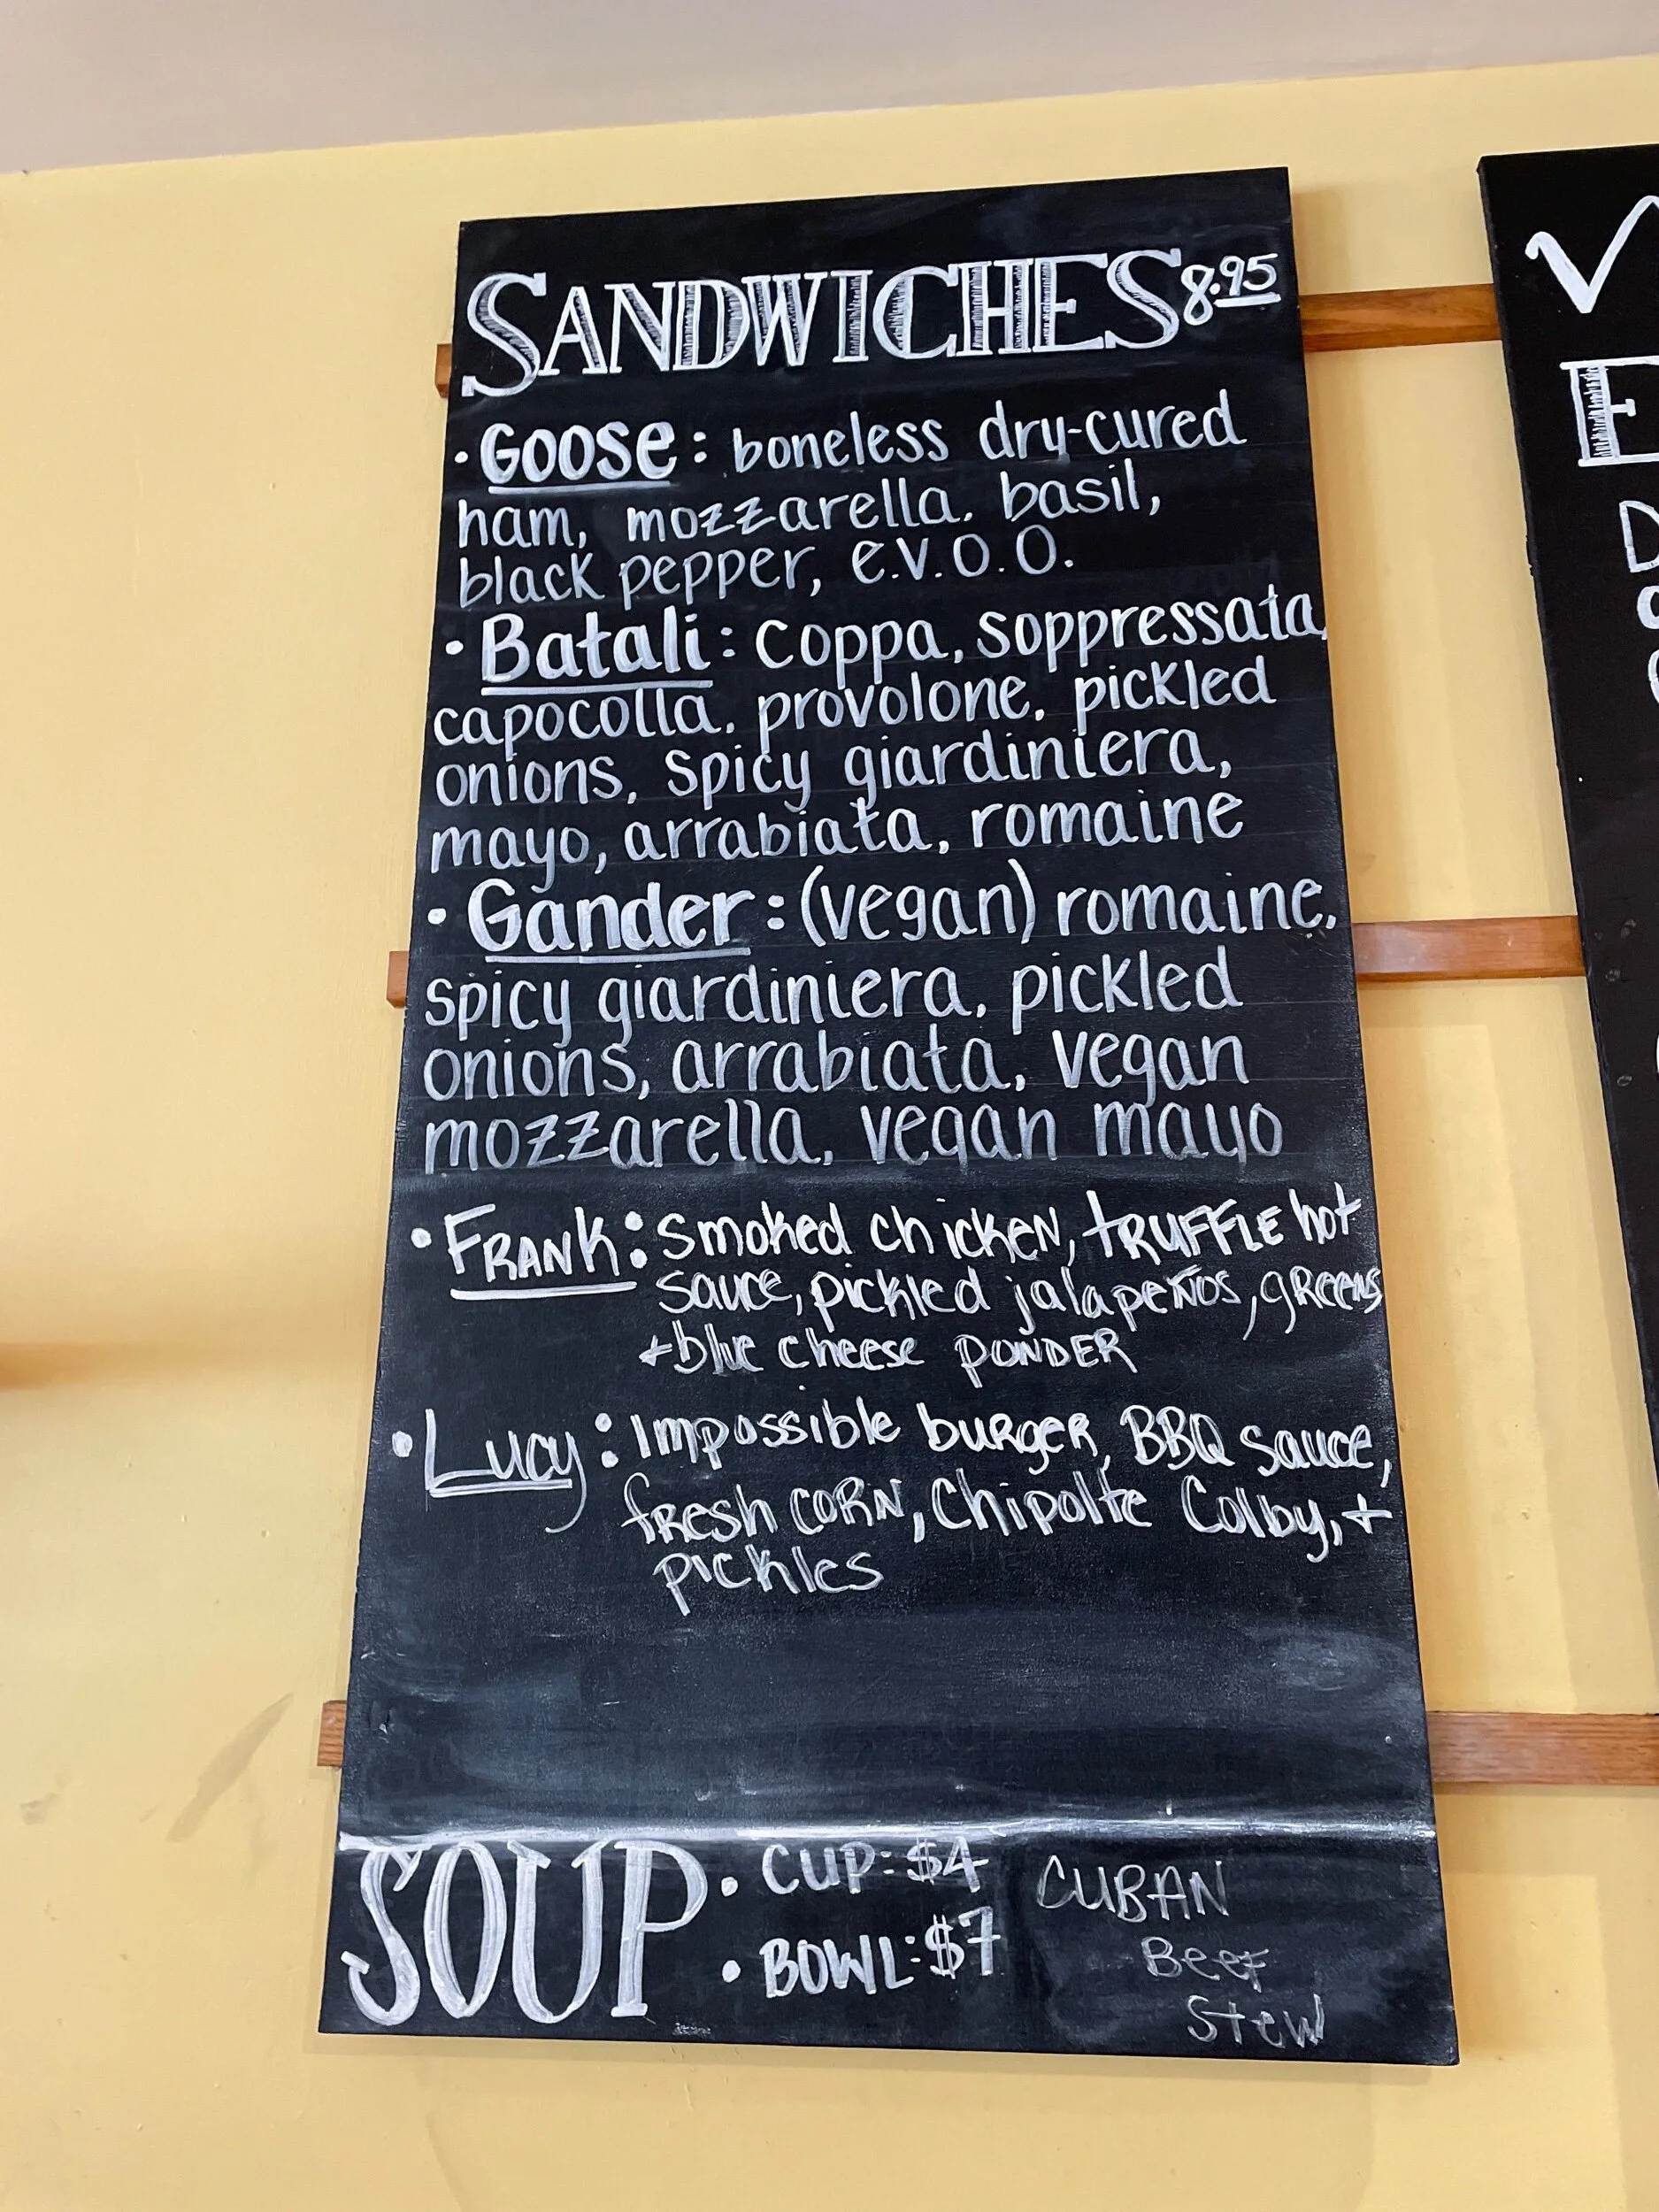 SANDWICHES 8.95
• GOOSE: boneless dry-cured
ham, mozzarella, basil,
black pepper, e.v.o.o.
• Batali: coppa, soppressata,
capocolla, provolone, pickled
onions, spicy giardiniera,
mayo, arrabiata, romaine
• Gander: (vegan) romaine,
spicy giardiniera, pickled
onions, arrabiata, vegan
mozzarella, vegan mayo
• FRANK: smoked chicken, TRUFFLE hot
sauce, pickled jalapeños, greens
+ blue cheese PONDER
• Lucy: Impossible burger, BBQ sauce,
fresh CORN, Chipolte Colby, +
pickles
SOUP
• CUP: $4
• BOWL: $7
CUBAN
Beef
Stew